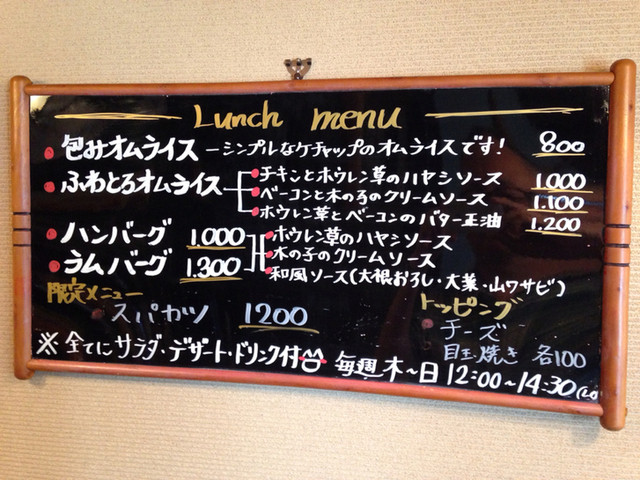 Lunch menu
包みオムライス ーシンプルなケチャップのオムライスです! 800
ふわとろオムライス チキンとホウレン草のハヤシソース 1.000
ベーコンと木の子のクリームソース 1.100
ホウレン草とベーコンのバター正油 1.200
ハンバーグ 1.000 ホウレン草のハヤシソース
ラムバーグ 1.300 木の子のクリームソース
和風ソース(大根おろし・大葉・山ワサビ)
限定メニュー
スパカツ 1200
トッピング
チーズ
目玉焼き 各100
※全てにサラダ・デザート・ドリンク付 毎週木〜日 12:00〜14:30